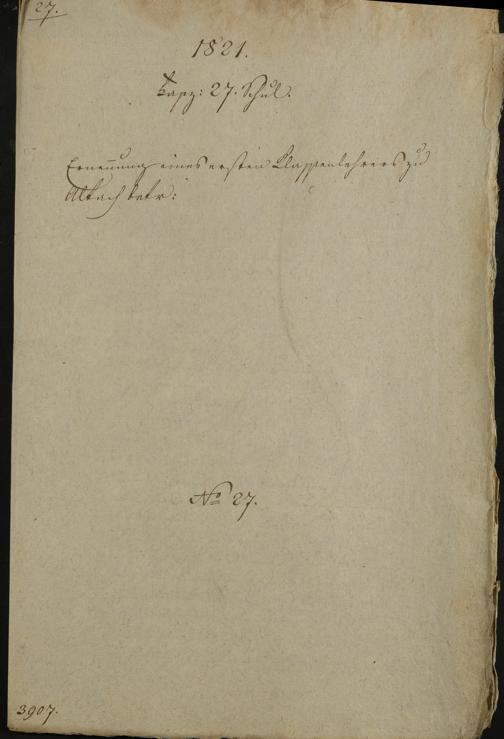 27.
1821.
Fasz: 27. Schul.
Ernennung eines ersten Klassenlehrers zu
betr:
No 27.
3907.